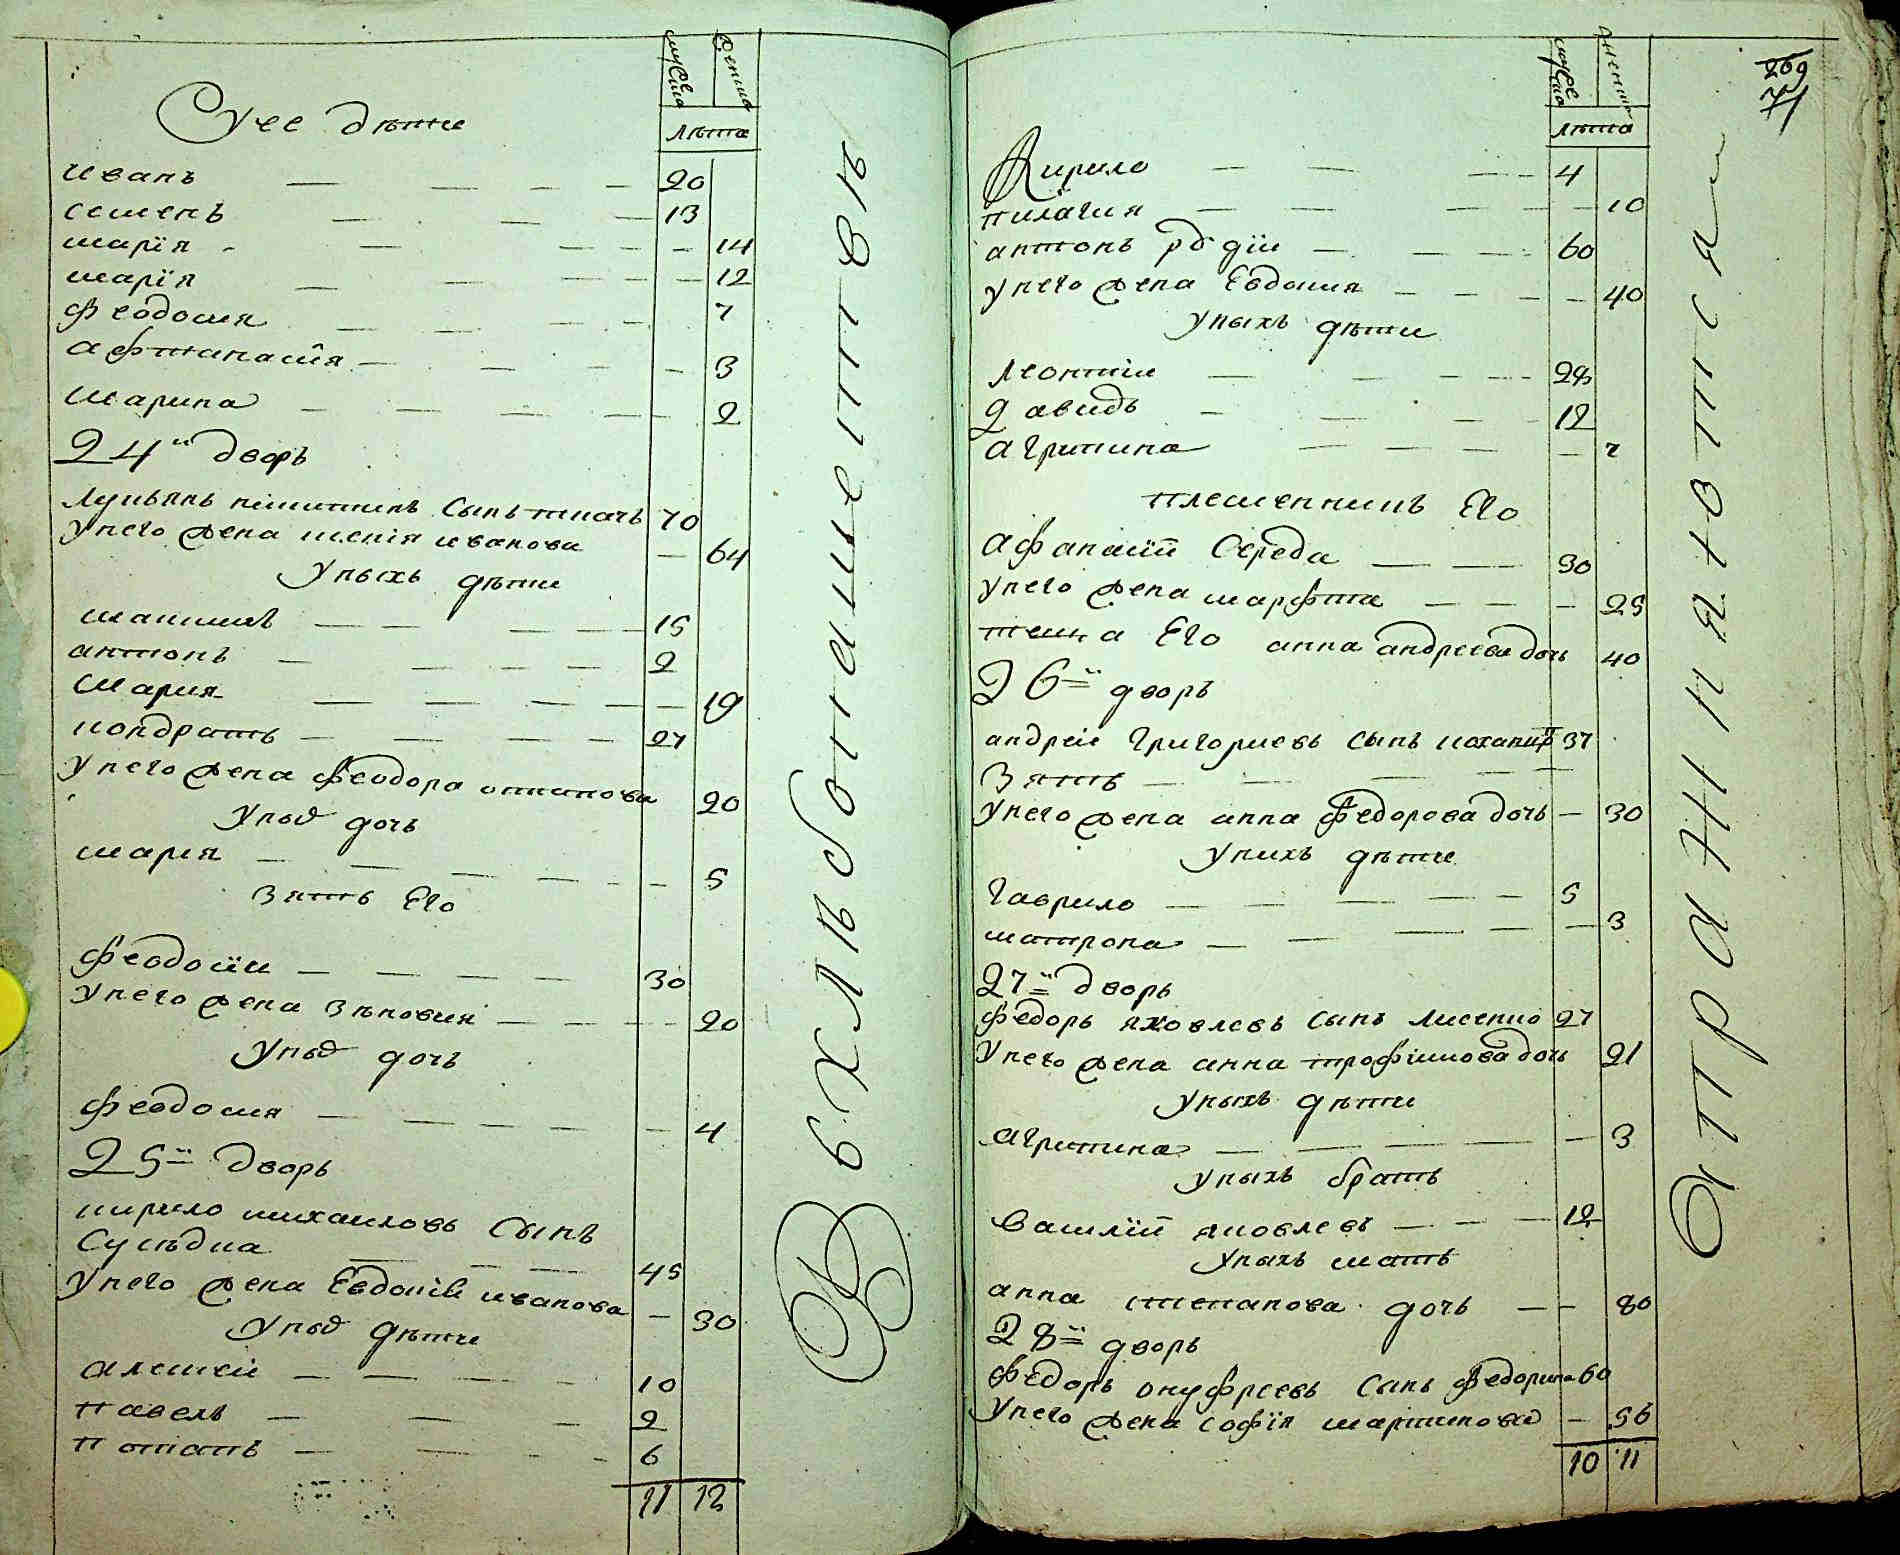 мужеска
женска
лѣта
У нее дѣти
иванъ — — — — 20
семенъ — — — 13
марїя — — — 14
марїя — — — 12
феодосия — — — 7
афтанасїя — — — 3
Марина — — — — 2
24й дворъ
лукьянъ никитинъ сынъ ткачъ 70
у него жена ксенїя иванова — 64
у ныхъ дѣти
максимъ — — — — 15
антонъ — — — — 2
Мария — — — — 19
кондратъ — — — — 27
у него жена феодора 20
у ныхъ дочь
мария — — — — 5
зять Его
феодосїи — — — — 30
у него жена зѣновия — — — 20
у ныхъ дочь
феодосия — — — — 4
25й дворъ
кирило михаиловъ сынъ
Сусѣдка — — — 45
у него жена Евдокїя иванова — 30
у ныхъ дѣти
алексеи — — — — 10
павелъ — — — 2
потапъ — — — 6
11 12
В хлѣбопашентвѣ
269
71
мужеска
женска
лѣта
Кирило — — — — 4
пилагия — — — — 10
антонъ — — — 60
у него жена Евдокия — — — — 40
у ныхъ дѣти
леонтии — — — — 28
давидъ — — — 12
агрипина — — — — 7
племенникъ Его
афанасїй Середа — — — 30
у него жена марфта — — — 25
теща Его анна андреева дочь 40
26й дворъ
андреи григориевъ сынъ 37
Зять — — — — —
у него жена анна федорова дочь — 30
у нихъ дѣти
гаврило — — — — — 5
матрона — — — — — 3
27й дворъ
федоръ яковлевъ сынъ лисенко 27
у него жена анна трофимова дочь 21
у ныхъ дѣти
агрипина — — — — — 3
у ныхъ братъ
василїй яковлевъ — — — 12
у ныхъ мать
анна степанова дочь — — 80
28й дворъ
федоръ онуфреевъ сынъ 60
у него жена софїя мартинова — 56
10 11
Упражняютися